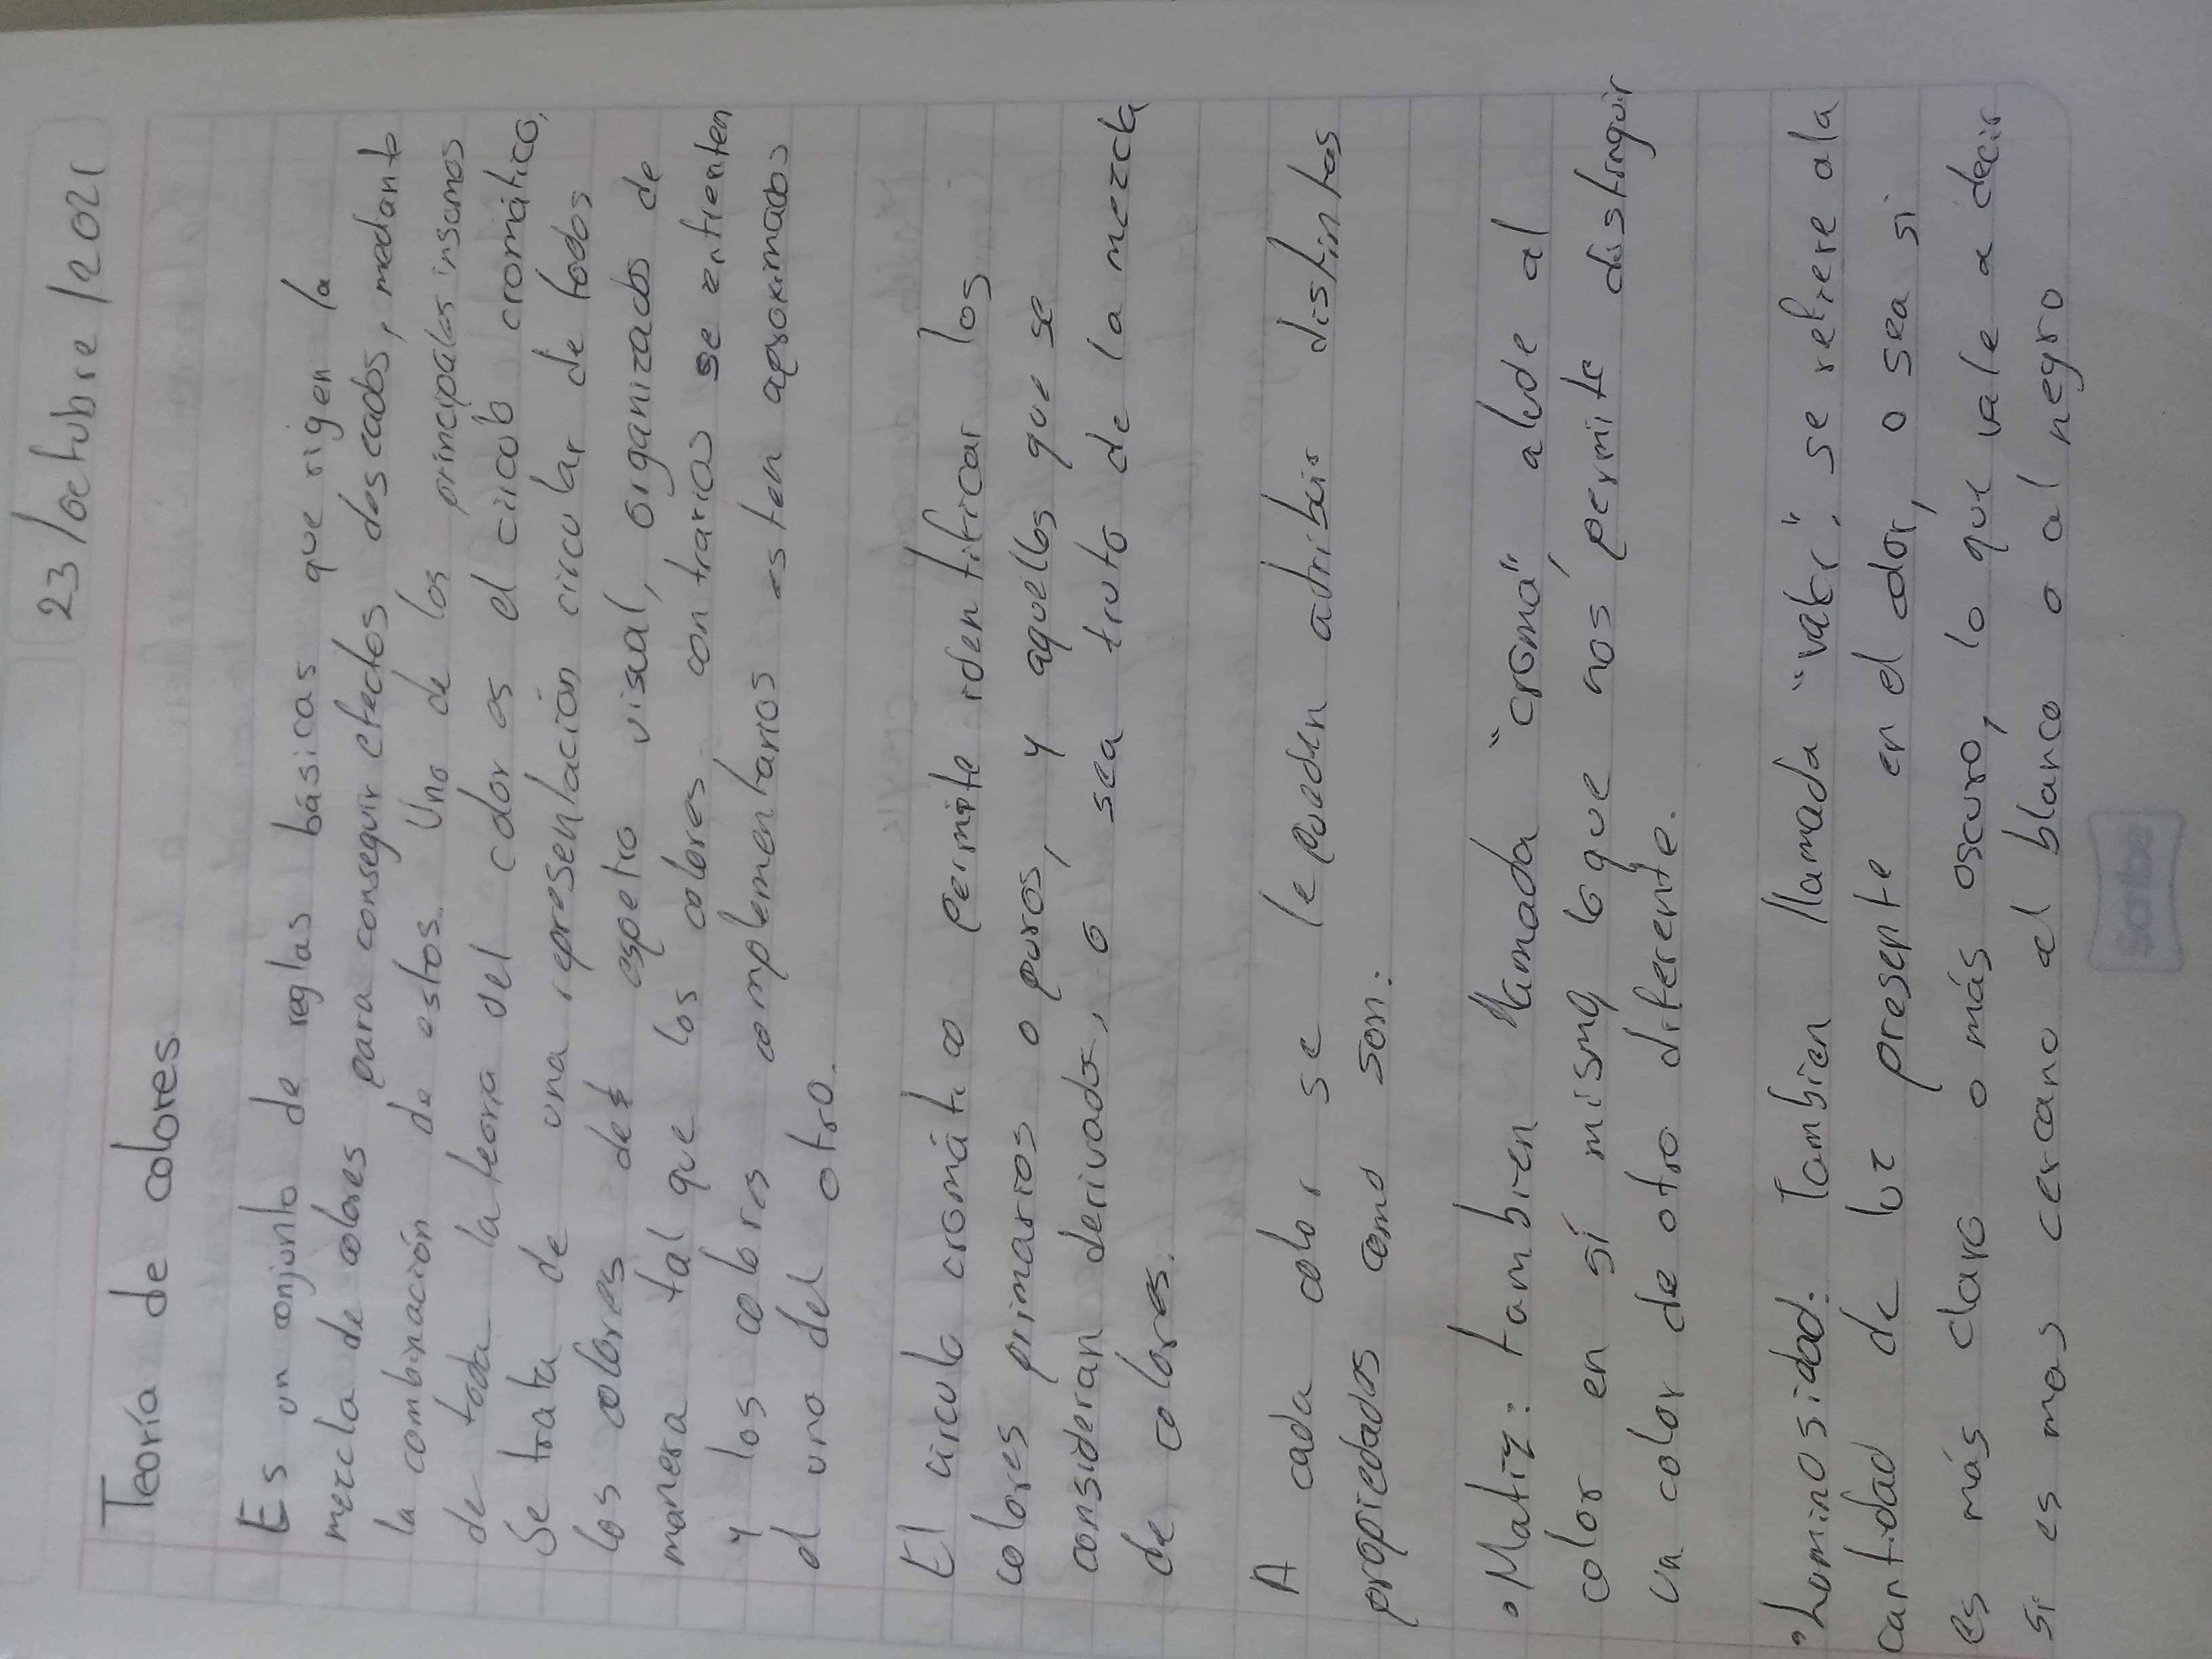 23/octubre/2021
Teoría de colores
Es un conjunto de reglas básicas que rigen la
mezcla de colores para conseguir efectos deseados, mediante
la combinación de estos. Uno de los principales insumos
de toda la teoría del color es el circulo cromático,
Se trata de una representación circular de todos
los colores del espetro visual, organizados de
manera tal que los colores contrarios se enfrenten
y los colores complementarios esten aproximados
el uno del otro.
El circulo cromático permite identificar los
colores primarios o puros, y aquellos que se
consideran derivados, o sea fruto de la mezcla
de colores.
A cada color se le pueden adribuir distintas
propiedades como son:
• Matiz: tambien llamada "croma", alude al
color en sí mismo, lo que nos permite distinguir
un color de otro diferente.
• Luminosidad: Tambien llamada "valor", se refiere ala
cantidad de luz presente en el color, o sea si
es más claro o más oscuro, lo que vale a decir
si es mas cercano al blanco o al negro
Scribe